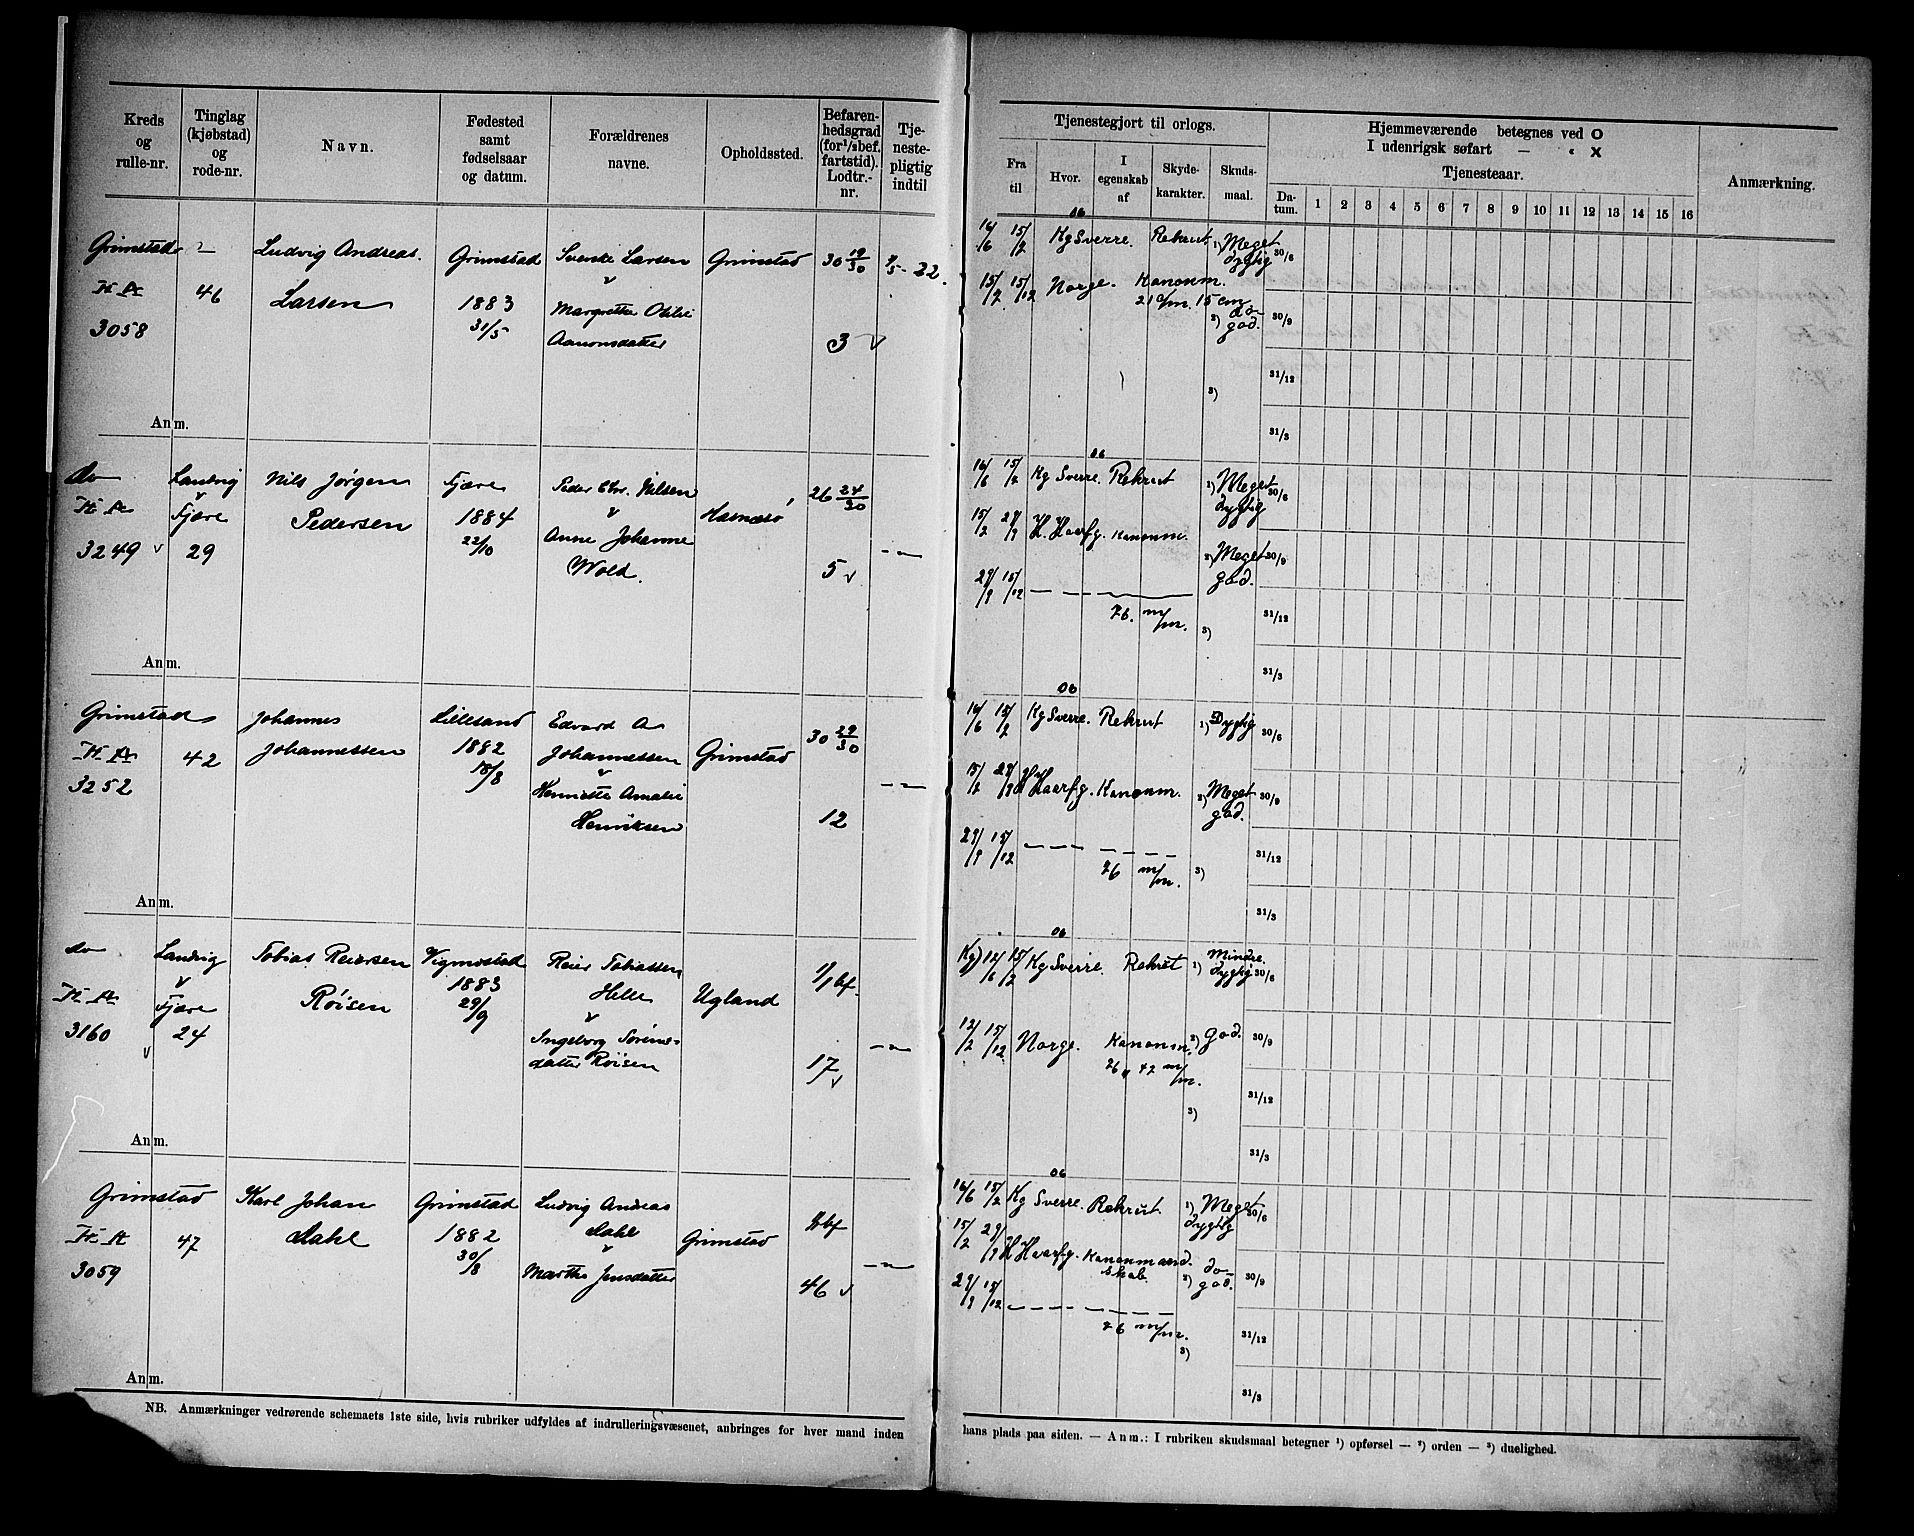 Kreds og rulle-nr.
Tinglag (kjøbstad) og rode-nr.
Navn.
Fødested samt fødselsaar og datum.
Forældrenes navne.
Opholdssted.
Befarenhedsgrad (for 1/2 bef. fartstid). Lodtr.-nr.
Tjenestepligtig indtil
Tjenestegjort til orlogs.
Fra til
Hvor.
I egenskab af
Skydekarakter.
Skudsmaal.
Hjemmeværende betegnes ved O
I udenrigsk søfart — " X
Tjenesteaar.
Datum. 1 2 3 4 5 6 7 8 9 10 11 12 13 14 15 16
Anmærkning.
Grimstad
3058
46
Ludvig Andreas.
Larsen
Grimstad
1883
31/5
Svenke Larsen
v
Margrethe Otilie
Aanonsdatter
Grimstad
30 19/30
3 v
06
16/6 15/2 Kg Sverre. Rekrut 1) Meget dygtig 30/6
15/2 15/12 Norge. Kanonm. 2) do god. 30/9
21 c/m. 15 cm
3) 31/12
31/3
Anm.
do
3249 v
Landvig
v
Fjære
29
Nils Jørgen
Pedersen
Fjære
1884
22/10
Peder Chr. Nilsen
v
Anne Johanne
Wold.
Hasnæsø
26 24/30
5 v
—"—
06
16/6 15/2 Kg Sverre. Rekrut 1) Meget dygtig 30/6
15/2 29/9 H. Haarfg. Kanonm. 2) Meget god. 30/9
29/9 15/12 — — —
76. m/m. 3) 31/12
31/3
Anm.
Grimstad
3252
42
Johannes
Johannessen
Lillesand
1882
18/8
Edvard A
Johannessen
v
Henriette Amalie
Henriksen
Grimstad
30 29/30
12
—"—
06
16/6 15/2 Kg Sverre. Rekrut 1) Dygtig 30/6
15/2 29/9 H Haarfg. Kanonm. 2) Meget god. 30/9
29/9 15/12 — — — — — —
76 m/m. 3) 31/12
31/3
Anm.
do
3160
v
Landvig
v
Fjære
24
Tobias Reiersen
Røisen
Vigmostad
1883
29/9
Reier Tobiassen
Helle
v
Ingeborg Sørens-
datter Røisen
Ugland
1/1 bf.
17 v
—"—
06
Kg) 12/6 15/2 Kg Sverre. Rekrut 1) Mindre dygtig 30/6
12/2 15/12 Norge. Kanonm. 2) God. 30/9
76 " 42 m/m.
3) 31/12
31/3
Anm.
Grimstad
3059
47
Karl Johan
Dahl
Grimstad
1882
30/8
Ludvig Andreas
Dahl
v
Marthe Jensdatter
Grimstad
46 v
—"—
06
16/6 15/2 Kg Sverre. Rekrut. 1) Meget dygtig 30/6
15/2 29/9 H Haarfg. Kanonmandskab. 2) do god. 30/9
29/9 15/12 — — — — — —
76 m/m. 3) 31/12
31/3
Anm.
NB. Anmærkninger vedrørende schemaets 1ste side, hvis rubriker udfyldes af indrulleringsvæsenet, anbringes for hver mand inden
hans plads paa siden. — Anm.: I rubriken skudsmaal betegner ¹) opførsel — ²) orden — ³) duelighed.